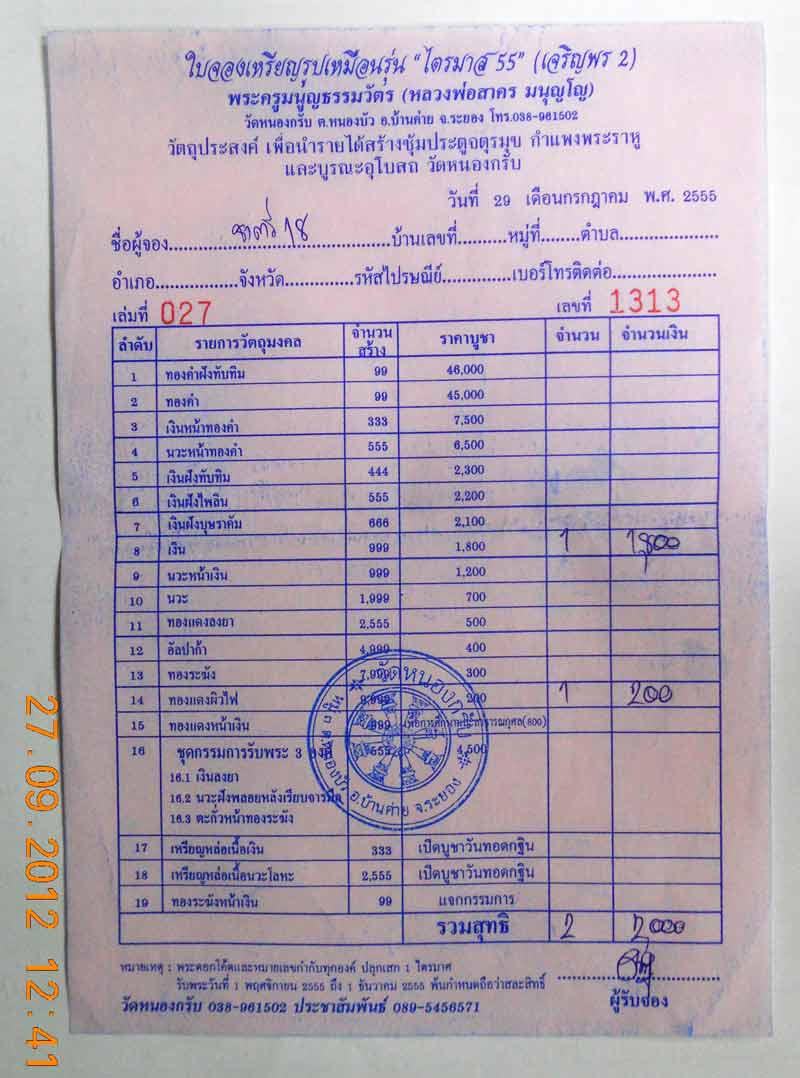 ใบจองเหรียญรูปเหมือนรุ่น "ไตรมาส 55" (เจริญพร 2)
พระครูมนูญธรรมวัตร (หลวงพ่อสาคร มนุญโญ)
วัดหนองกรับ ต.หนองบัว อ.บ้านค่าย จ.ระยอง โทร.038-961502
วัตถุประสงค์ เพื่อนำรายได้สร้างซุ้มประตูจตุรมุข กำแพงพระราหู
และบูรณะอุโบสถ วัดหนองกรับ
วันที่ 29 เดือนกรกฎาคม พ.ศ. 2555
ชื่อผู้จอง..................บ้านเลขที่..........หมู่ที่........ตำบล....................
อำเภอ.................จังหวัด..............รหัสไปรษณีย์..............เบอร์โทรติดต่อ.....................
เล่มที่ 027 เลขที่ 1313
ลำดับ รายการวัตถุมงคล จำนวนสร้าง ราคาบูชา จำนวน จำนวนเงิน
1 ทองคำฝังทับทิม 99 46,000
2 ทองคำ 99 45,000
3 เงินหน้าทองคำ 333 7,500
4 นวะหน้าทองคำ 555 6,500
5 เงินฝังทับทิม 444 2,300
6 เงินฝังไพลิน 555 2,200
7 เงินฝังบุษราคัม 666 2,100
8 เงิน 999 1,800 1 1,800
9 นวะหน้าเงิน 999 1,200
10 นวะ 1,999 700
11 ทองแดงลงยา 2,555 500
12 อัลปาก้า 4,999 400
13 ทองระฆัง 7,999 300
14 ทองแดงผิวไฟ 9,999 200 1 200
15 ทองแดงหน้าเงิน 999 (800)
16 ชุดกรรมการรับพระ 3 องค์ 555 4,500
16.1 เงินลงยา
16.2 นวะฝังพลอยหลังเรียบจารมือ
16.3 ตะกั่วหน้าทองระฆัง
วัดหนองกรับ
ต.หนองบัว อ.บ้านค่าย จ.ระยอง
17 เหรียญหล่อเนื้อเงิน 333 เปิดบูชาวันทอดกฐิน
18 เหรียญหล่อเนื้อนวะโลหะ 2,555 เปิดบูชาวันทอดกฐิน
19 ทองระฆังหน้าเงิน 99 แจกกรรมการ
รวมสุทธิ 2 2000
หมายเหตุ : พระตอกโค๊ตและหมายเลขกำกับทุกองค์ ปลุกเสก 1 ไตรมาศ
รับพระวันที่ 1 พฤศจิกายน 2555 ถึง 1 ธันวาคม 2555 พ้นกำหนดถือว่าสละสิทธิ์
ผู้รับจอง
วัดหนองกรับ 038-961502 ประชาสัมพันธ์ 089-5456571
27.09.2012 12:41